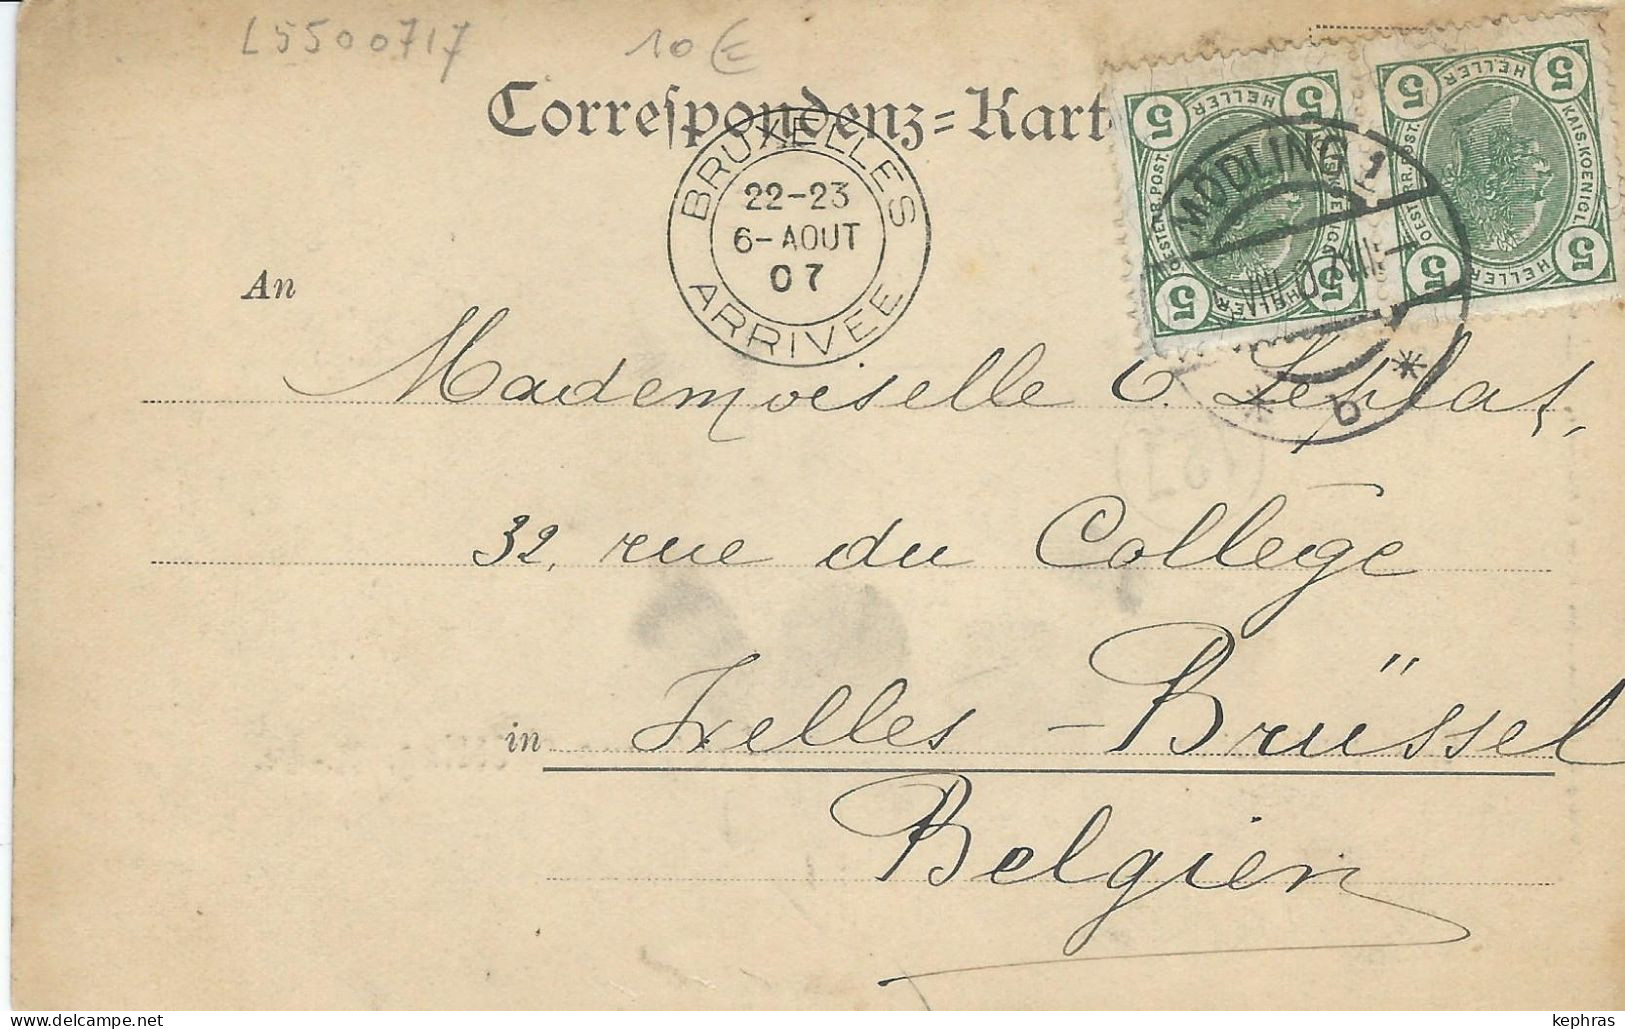 L5500717 10€
Correspondenz=Kart
BRUXELLES
22-23
6-AOUT
07
ARRIVEE
5 HELLER 5
5 HELLER 5
5 HELLER 5
KAIS.KOENIGL
OESTERR.POST.
MÖDLING 1
VIII 07
* b *
An Mademoiselle C. Leplat,
32, rue du Collège
in Ixelles - Brüssel
Belgien
kephras